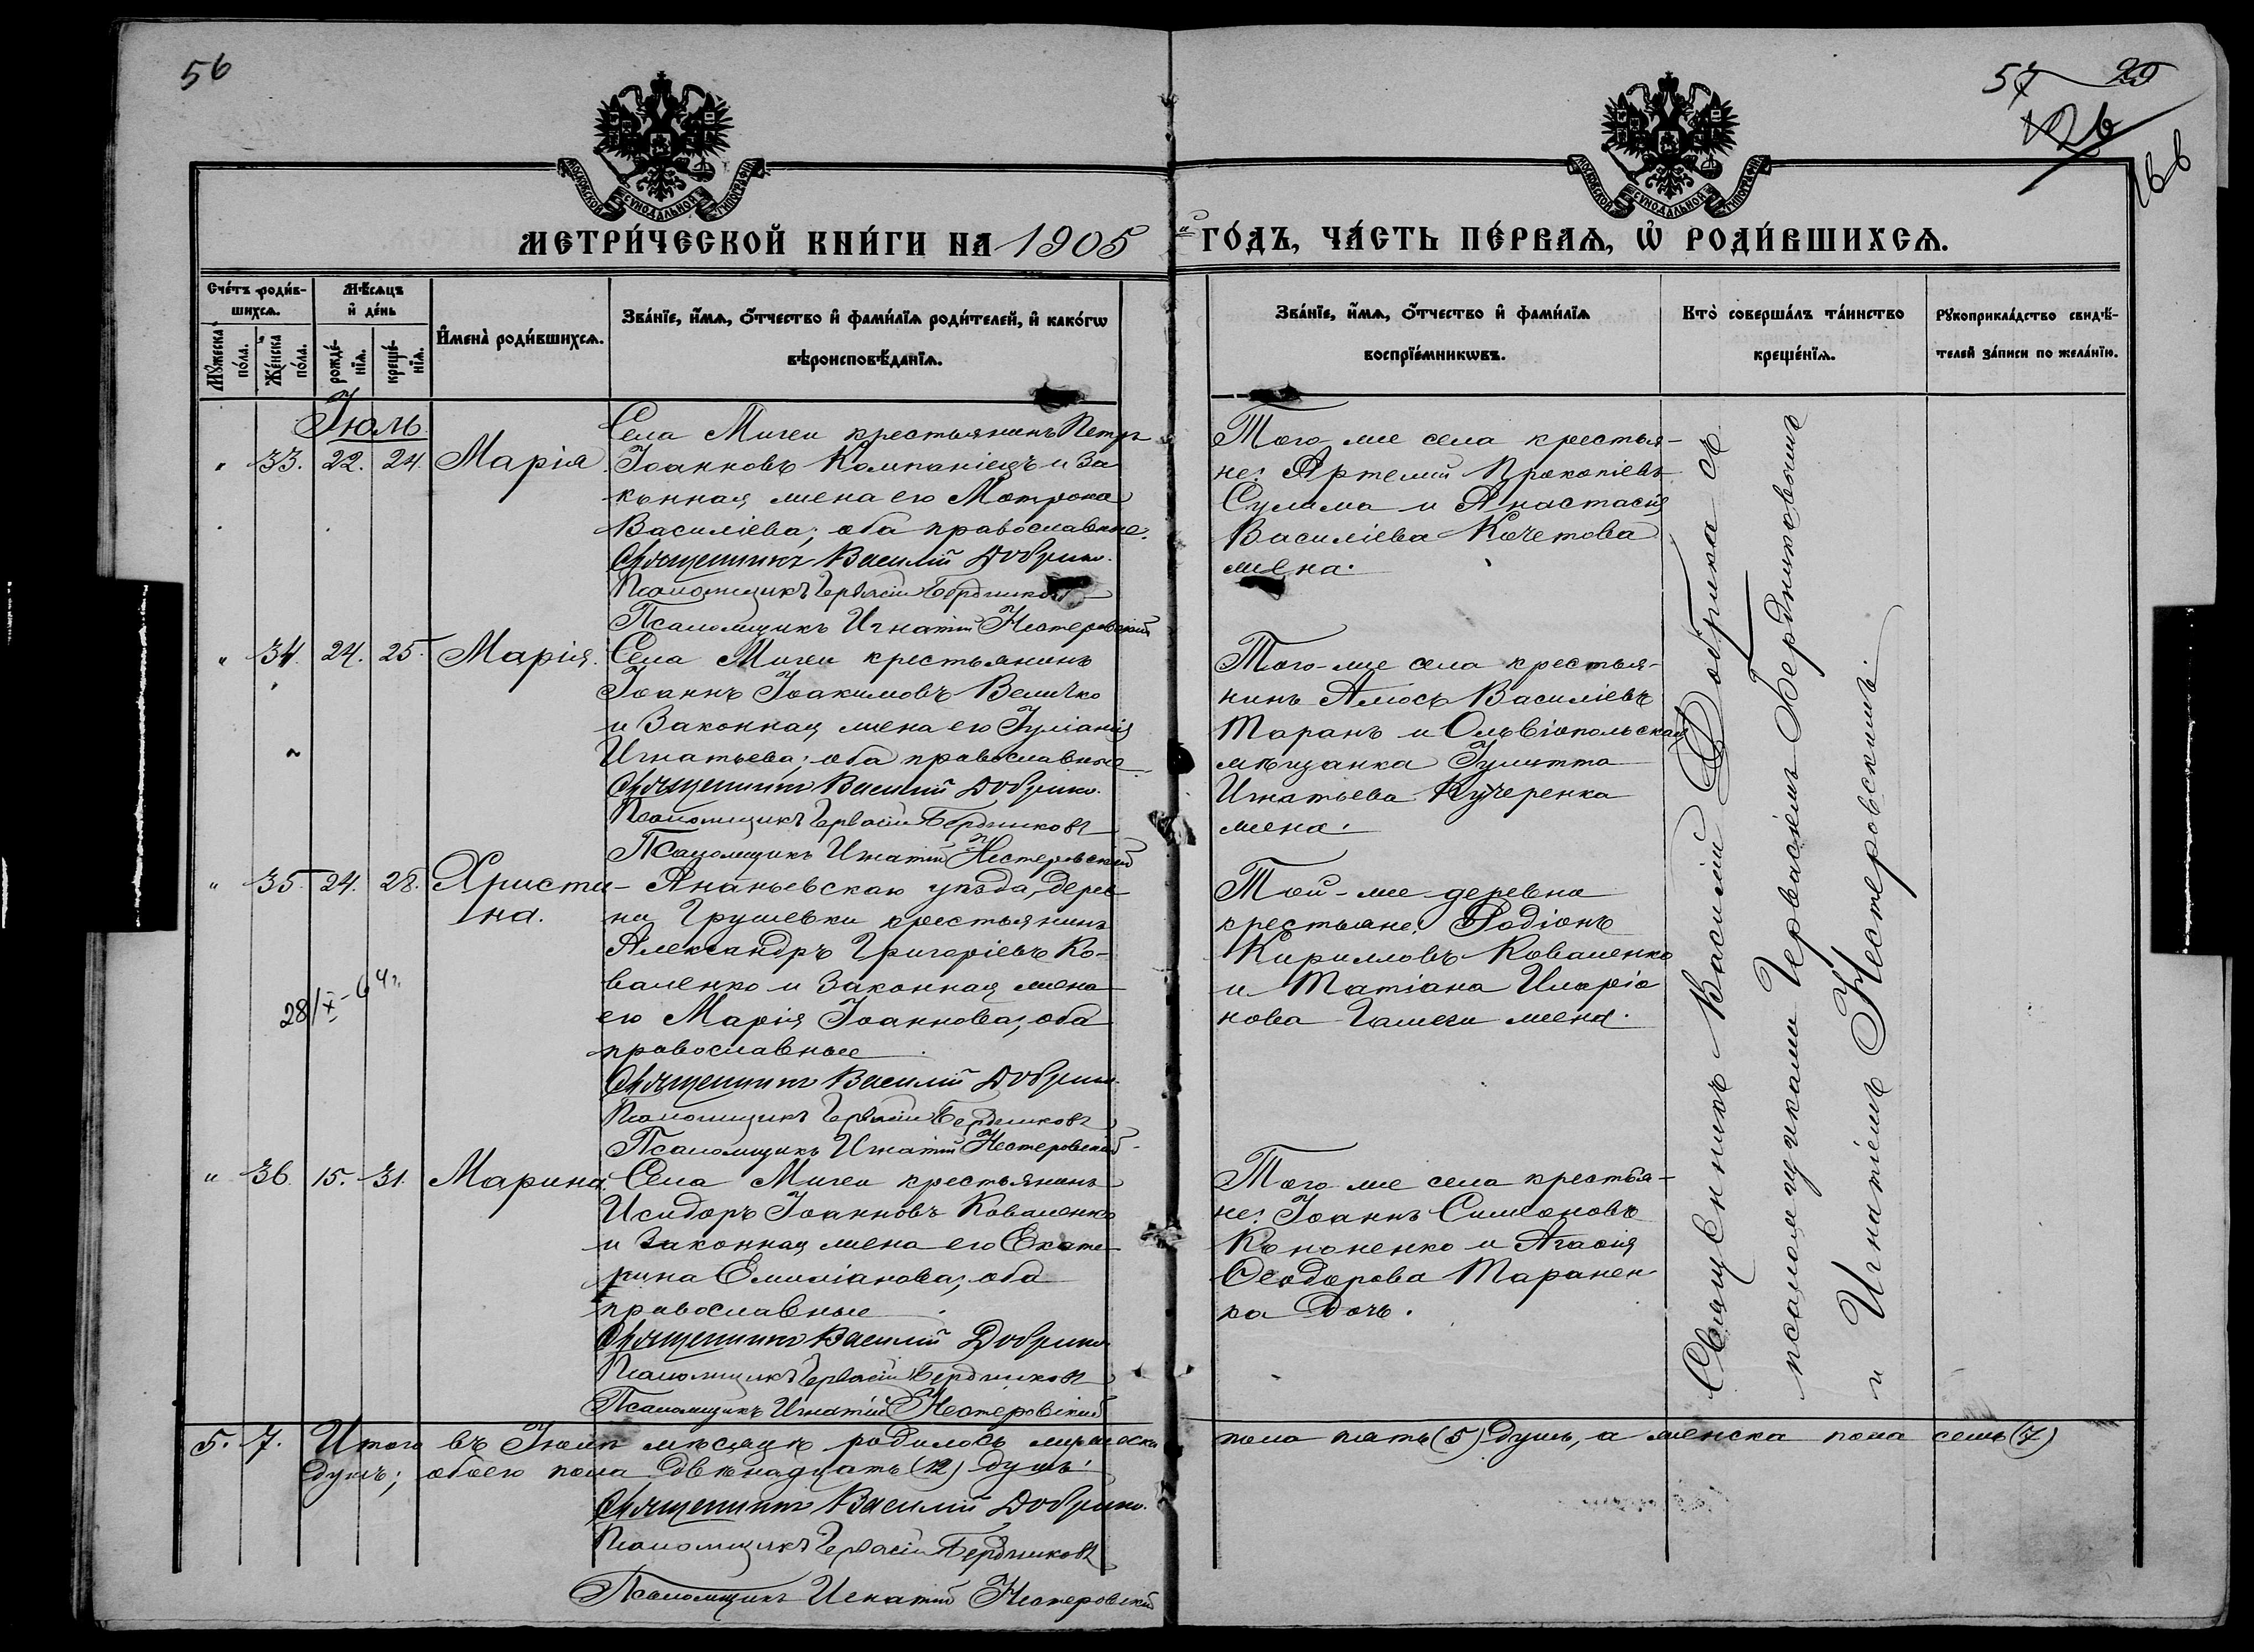 56
57 29
126
166
МОСКОВСКОЙ СѴНОДАЛЬНОЙ ТИПОГРАФІИ
МОСКОВСКОЙ СѴНОДАЛЬНОЙ ТИПОГРАФІИ
МЕТРИ́ЧЕСКОЙ КНИ́ГИ НА 1905 ГО́ДЪ, ЧА́СТЬ ПЕ́РВАѦ, Ѡ҆ РОДИ́ВШИХСѦ.
Сче́тъ роди́в-
шихсѧ.
Мѣ́сѧцъ
и҆ де́нь
Мꙋ́жеска по́ла.
Же́нска по́ла.
рожде́-
нїѧ.
креще́-
нїѧ.
И҆мена̀ роди́вшихсѧ.
Зва́нїе, и҆́мѧ, ѻ҆́тчество и҆ фами́лїѧ роди́телей, и҆ како́гѡ
вѣроисповѣ́данїѧ.
Зва́нїе, и҆́мѧ, ѻ҆́тчество и҆ фами́лїѧ
воспрїе́мникѡвъ.
Кто̀ соверша́лъ та́инство
креще́нїѧ.
Рꙋкоприкла́дство свидѣ́-
телей за́писи по жела́нїю.
Іюль
" 33. 22. 24. Марія
Села Мигеи крестьянинъ Петръ
Іоанновъ Компаніецъ и за
конная жена его Мотрона
Василіева; оба православные.
Священникъ Василій Добрико.
Псаломщикъ Гервасій Бердниковъ
Псаломщикъ Игнатій Нестеровскій
Того же села крестья-
не: Артемій Прокопіевъ
Сулима и Анастасія
Василіева Кочетова
жена.
" 34. 24. 25. Марія.
Села Мигеи крестьянинъ
Іоаннъ Іоакимовъ Величко
и законная жена его Іуліанія
Игнатьева; оба православные
Священникъ Василій Добрико.
Псаломщикъ Гервасій Бердниковъ
Псаломщикъ Игнатій Нестеровскій
Того-же села крестья-
нинъ Амосъ Василіевъ
Таранъ и Ольвіопольская
мѣщанка Іулитта
Игнатьева Кучеренка
жена.
" 35. 24. 28. Христи-
на.
Ананьевскаго уѣзда, дерев
ни Грушевки крестьянинъ
Александръ Григоріевъ Ко-
валенко и законная жена
его Марія Іоаннова; оба
православные.
Священникъ Василій Добрико.
Псаломщикъ Гервасій Бердниковъ
Псаломщикъ Игнатій Нестеровскій
28/X - 64 г.
Той-же деревни
крестьяне: Родіонъ
Кирилловъ Коваленко
и Татіана Иларіо
нова жена.
" 36. 15. 31. Марина.
Села Мигеи крестьянинъ
Исидоръ Іоанновъ Коваленко
и законная жена его Екате-
рина Емиліанова; оба
православные.
Священникъ Василій Добрико
Псаломщикъ Гервасій Бердниковъ
Псаломщикъ Игнатій Нестеровскій
Того же села крестья-
не: Іоаннъ Симеоновъ
Кононенко и Агафія
Ѳеодорова Таранен-
ка дочь.
Священникъ Василій Добрико съ
псаломщиками Гервасіемъ Бердниковымъ
и Игнатіемъ Нестеровскимъ.
5. 7. Итого въ Іюлѣ мѣсяцѣ родилось мужеска пола пять (5) душъ, а женска пола семь (7)
душъ; обоего пола двѣнадцать (12) душъ.
Священникъ Василій Добрико.
Псаломщикъ Гервасій Бердниковъ
Псаломщикъ Игнатій Нестеровскій